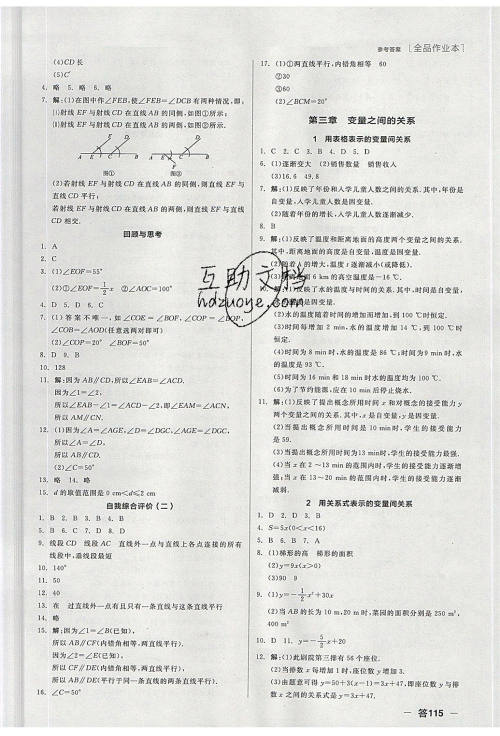 参考答案 [全品作业本]
(4)CD长
(5)C′
4. 略 5. 略 6. 略
7. 解:(1)在图中作∠FEB,使∠FEB=∠DCB有两种情况,即:
①射线 EF 与射线 CD 在直线 AB 的同侧,如图①所示;
②射线 EF 与射线 CD 在直线 AB 的两侧,如图②所示.
图① 图②
(2)若射线 EF 与射线 CD 在直线 AB 的同侧,则直线 EF 与直线 CD 平行;
若射线 EF 与射线 CD 在直线 AB 的两侧,则直线 EF 与直线 CD 相交.
回顾与思考
1. A
2. C
3. (1)∠EOF=55°
(2)①∠EOF=1/2x ②∠AOC=100°
4. D 5. D 6. C
7. (1) 答案不唯一,如∠COE=∠BOF,∠COP=∠BOP,
∠COB=∠AOD(任意选两对即可)
(2)∠COP=20° ∠BOF=50°
8. D 9. B
10. 128
11. 解:因为AB∥CD,所以∠EAB=∠ACD.
因为∠1=∠2,
所以∠EAB-∠1=∠ACD-∠2,即∠EAM=∠ACN,
所以 AM∥CN.
12. (1)因为∠A=∠AGE,∠D=∠DGC,∠AGE=∠DGC,
所以∠A=∠D,
所以 AB∥CD.
(2)∠C=50°
13. 略 14. 略
15. d 的取值范围是 0 cm<d≤2 cm
自我综合评价(二)
1. B 2. B 3. B 4. D
5. B 6. C 7. D 8. D
9. 线段CD 线段AC 直线外一点与直线上各点连接的所有线段中,垂线段最短
10. 140°
11. 50
12. 40
13. 在 过直线外一点有且只有一条直线与这条直线平行
14. 略
15. 解:因为∠1=∠B(已知),
所以AB∥CF(内错角相等,两直线平行).
因为∠2=∠E(已知),
所以 CF∥DE(内错角相等,两直线平行),
所以AB∥DE(平行于同一条直线的两条直线平行).
16. ∠C=50°
17. (1)①两直线平行,内错角相等 60
②30
③60
(2)∠BCM=20°
第三章 变量之间的关系
1 用表格表示的变量间关系
1. C 2. C 3. B 4. D 5. D
6. (1)逐渐变大 (2)销售数量 销售收入
(3)16.6 49.8
7. 解:(1)反映了年份和入学儿童人数之间的关系.其中,年份是自变量,入学儿童人数是因变量.
(2)随着年份的增长,入学儿童人数逐渐减少.
8. B
9. 解:(1)反映了温度和距离地面的高度两个变量之间的关系.其中,距离地面的高度是自变量,温度是因变量.
(3)距离地面6 km的高空温度是-16 ℃.
(2)水的温度随着时间的增加而增加,到100 ℃时恒定.
(3)时间每增加 2 min,水的温度增加 14 ℃,到 100 ℃ 时恒定.
(4)时间为 8 min 时,水的温度是 86 ℃;时间为9 min 时,水的温度是 93 ℃.
(5)时间为16 min 和 18 min时水的温度均为 100 ℃.
(6)为了节约能源,应在 10 min 后停止烧水.
11. 解:(1)反映了提出概念所用时间 x 和对概念的接受能力 y 两个变量之间的关系.其中,x 是自变量,y 是因变量.
(2)当提出概念所用时间是 10 min 时,学生的接受能力是 59.
(3)当提出概念所用时间是 13 min 时,学生的接受能力最强.
(4)当 x 在 2～13 min 的范围内时,学生的接受能力逐渐增强;当 x 在 13～20 min 的范围内时,学生的接受能力逐渐减弱.
2 用关系式表示的变量间关系
1. D 2. D 3. C
4. S=5x(0<x<16)
5. B 6. B 7. A
8. (1)梯形的高 梯形的面积
(2)y=9x(x>0)
(3)90 9
9. (1)y=-1/2x²+30x
(2)当 AB 的长为 10 m,20 m 时,菜园的面积分别是 250 m², 400 m²
10. D 11. y=-5/2x+20
12. 解:(1)此剧院第三排有 56 个座位.
(2)当排数 x 每增加 1 时,座位数 y 增加 3.
(3)由题意可得 y=50+3(x-1)=3x+47,即座位数 y 与排数 x 之间的关系式是 y=3x+47.
互助文档
hdzuoye.com
答115